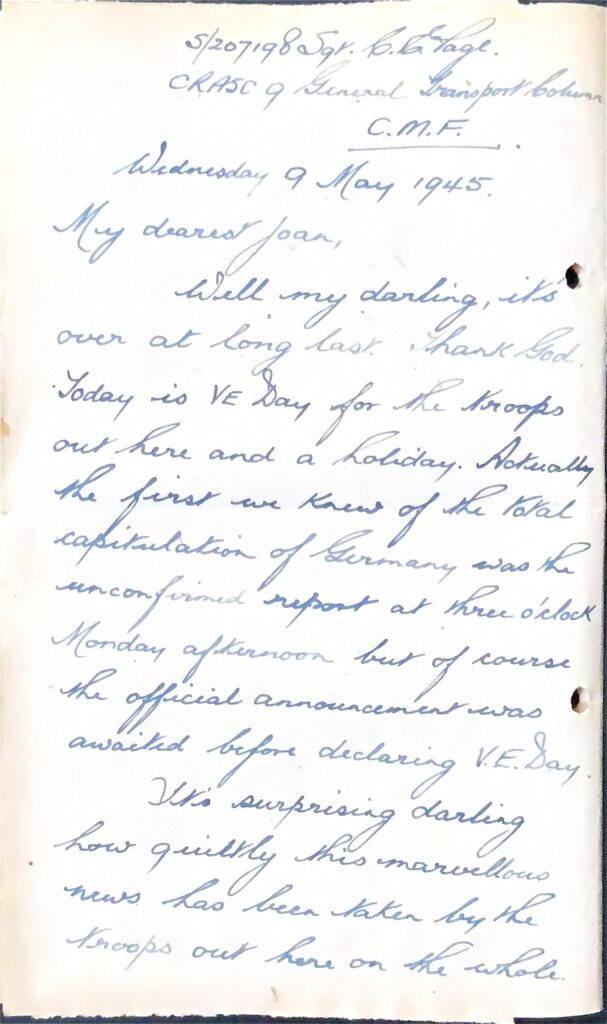 S/207198 Sgt. C. E. Page.
CRASC 9 General Transport Column
C.M.F.
Wednesday 9 May 1945.
My dearest Joan,
Well my darling, it's
over at long last. Thank God.
Today is VE Day for the troops
out here and a holiday. Actually
the first we knew of the total
capitulation of Germany was the
unconfirmed report at three o'clock
Monday afternoon but of course
the official announcement was
awaited before declaring V.E. Day.
It's surprising darling
how quietly this marvellous
news has been taken by the
troops out here on the whole.